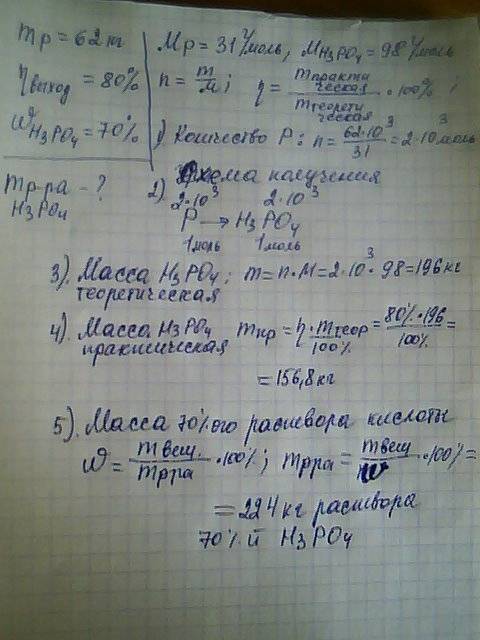 mр = 62 кг
ηвыход = 80%
ωH3PO4 = 70%
mр-ра - ?
H3PO4
Mр = 31 г/моль, MH3PO4 = 98 г/моль
n = m/M; η = mпракти ческая / mтеорети ческая · 100% ;
1) Количество P: n = 62·10³/31 = 2·10³ моль
2) Схема получения
2·10³ 2·10³
P → H3PO4
1моль 1моль
3). Масса H3PO4: m = n·M = 2·10³·98 = 196 кг
теоретическая
4) Масса H3PO4 mпр = η·mтеор/100% = 80%·196/100% =
практическая
= 156,8 кг
5). Масса 70%ого раствора кислоты
ω = mвещ./mрра ·100%; mрра = mвещ/ω ·100% =
= 224 кг раствора
70%й H3PO4